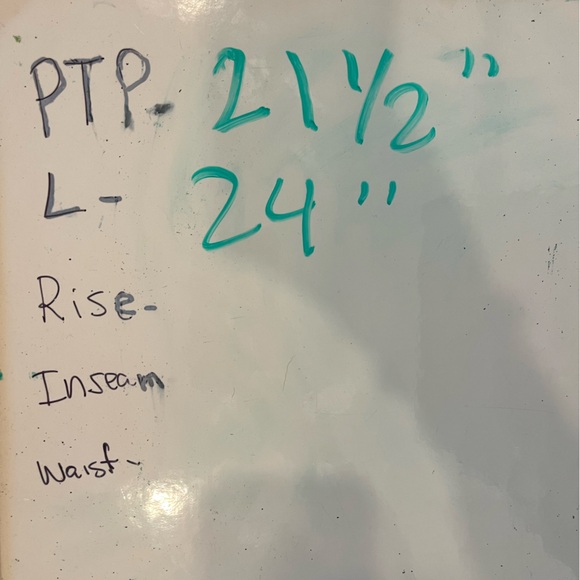 PTP- 21 1/2"
L- 24"
Rise-
Inseam
Waist-